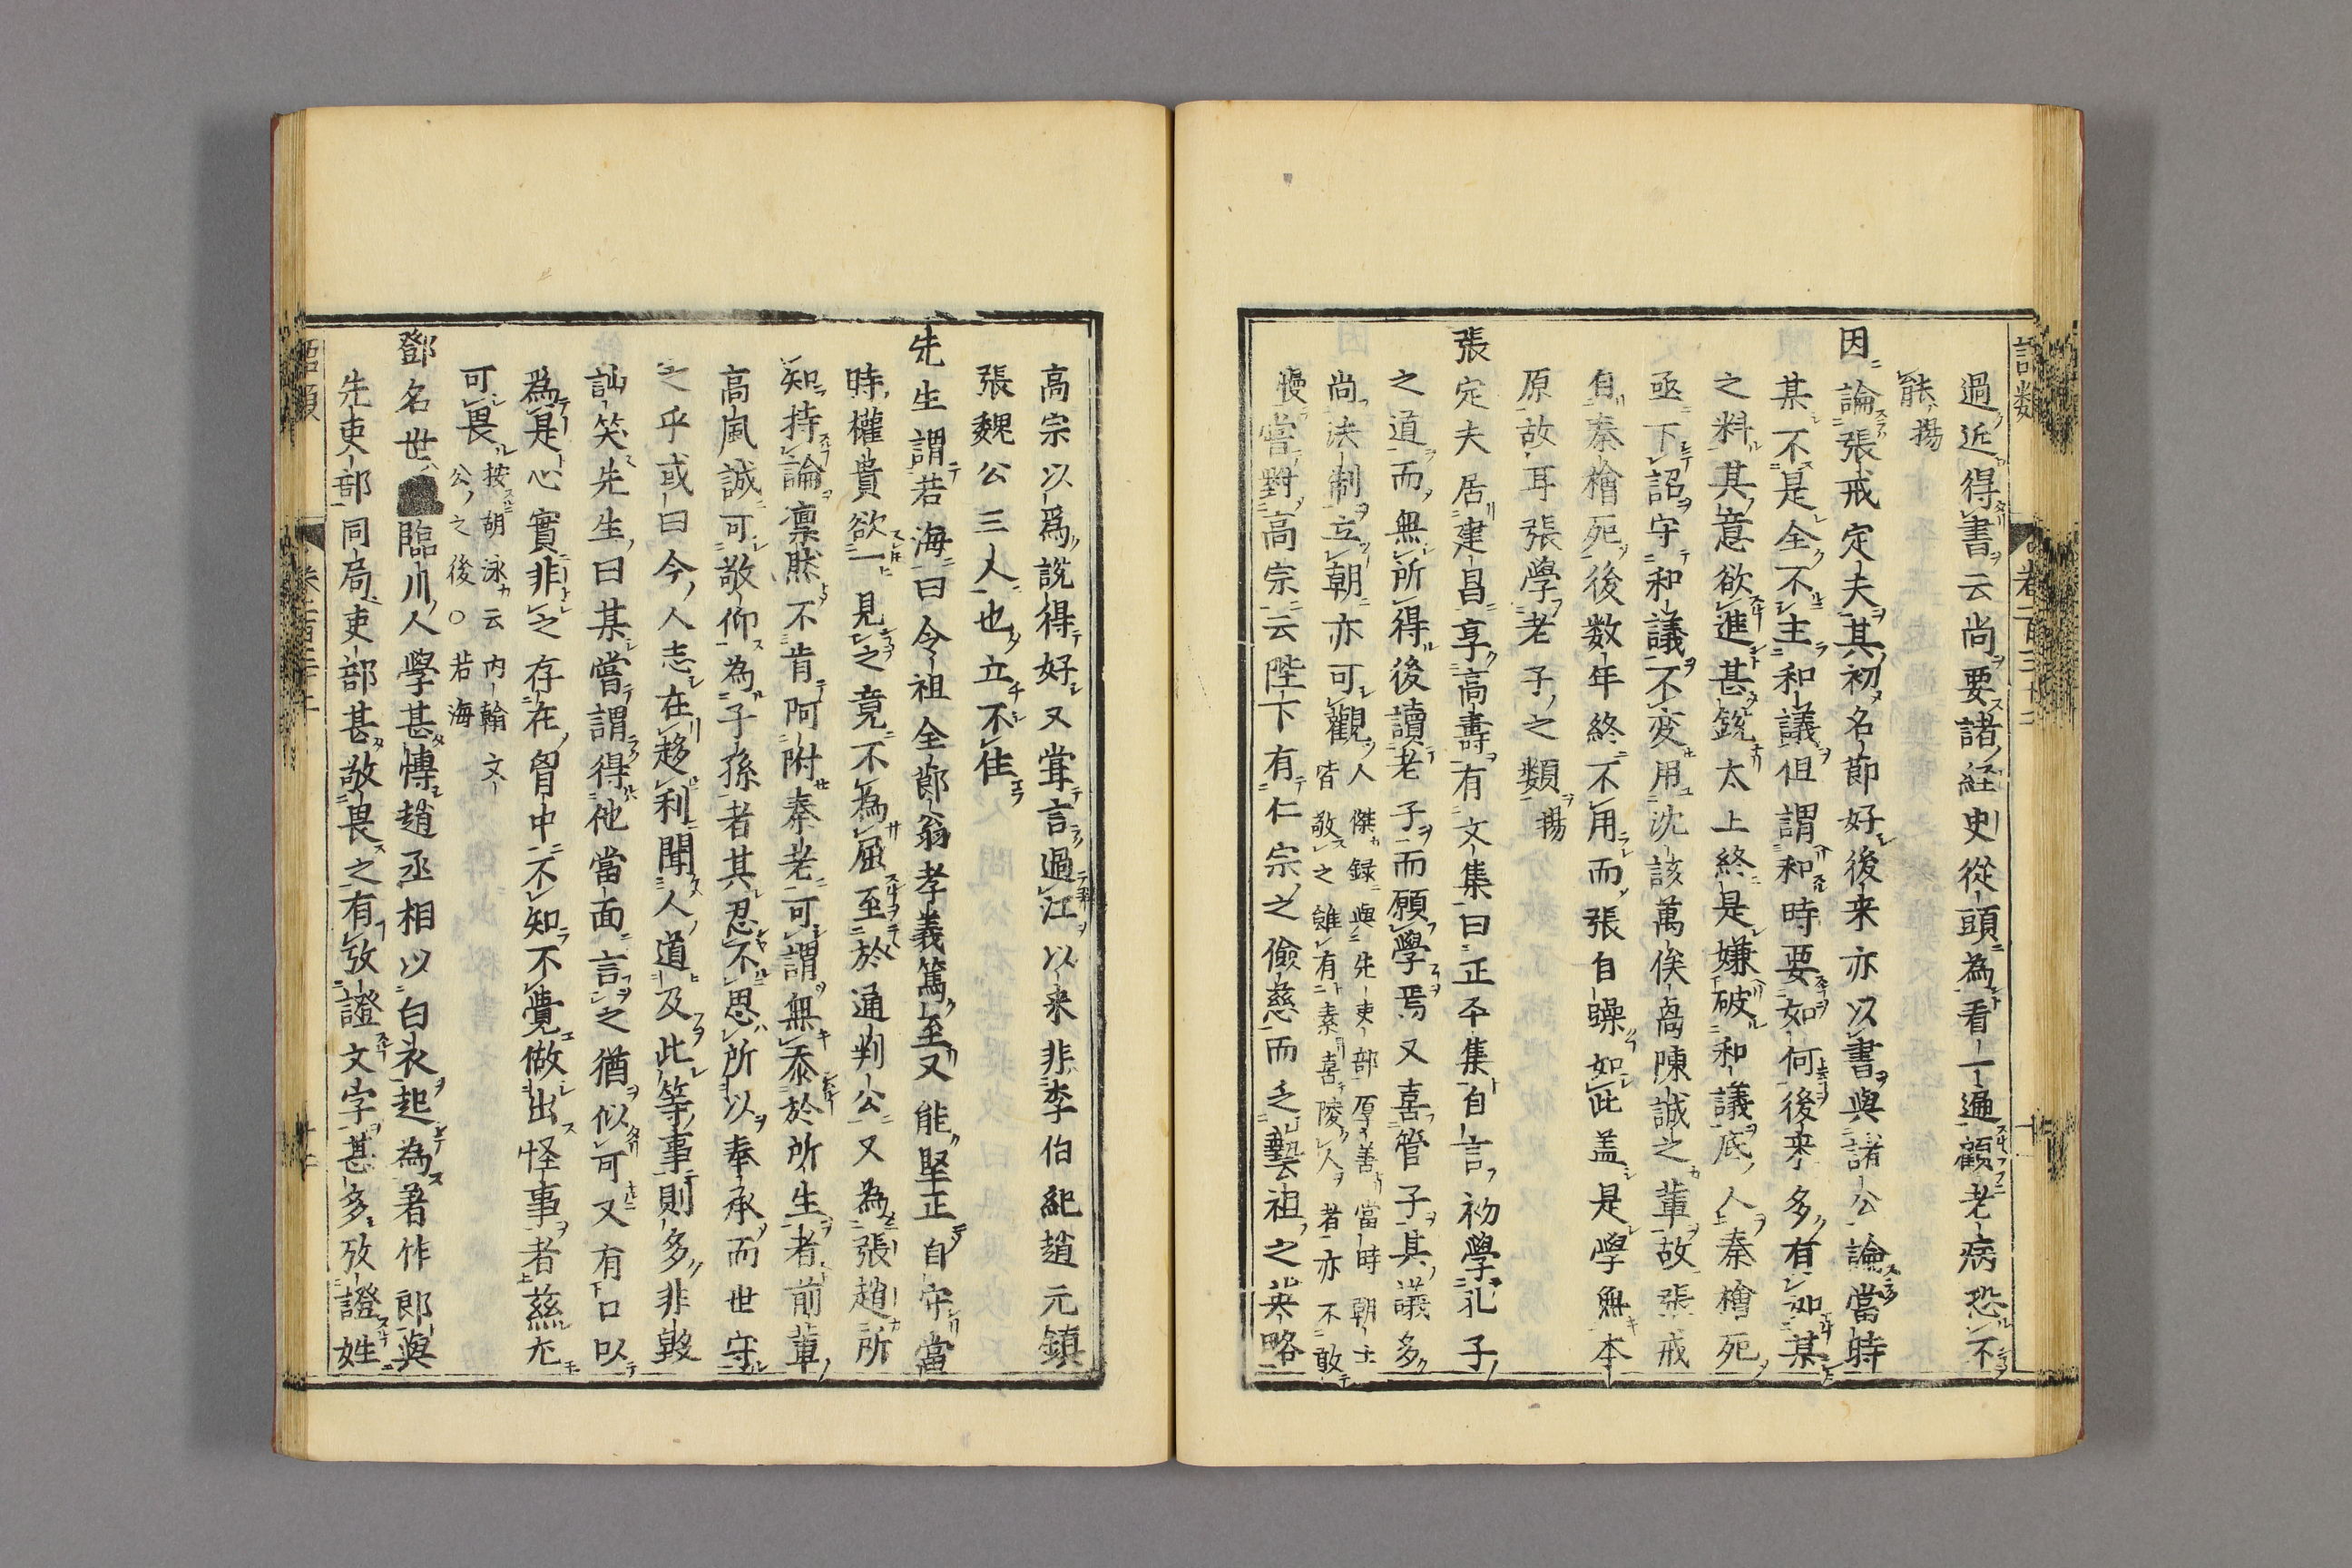 過近得書云尚要諸経史從頭為看一遍顧老病恐不
能揚
因論張戒定夫其初名節好後来亦以書與諸公論當時
某不是全不主和議但謂和時要如何後来多有如某
之料其意欲進甚銳太上終是嫌破和議底人秦檜死
亟下詔守和議不変用沈該萬俟卨陳誠之輩故張戒
自秦檜死後数年終不用而張自躁如此盖是學無本
原故耳張學老子之類揚
張定夫居建昌享高壽有文集曰正平集自言初學孔子
之道而無所得後讀老子而願學焉又喜管子其議多
尚法制立朝亦可觀人傑録與先吏部厚善當時朝士
皆敬之雖有素喜陵人者亦不敢
慢嘗對高宗云陛下有仁宗之儉慈而乏藝祖之英略
高宗以為說得好又甞言過江以来非李伯紀趙元鎮
張魏公三人也立不住
先生謂若海曰令祖全節翁孝義篤至又能堅正自守當
時權貴欲一見之竟不為屈至於通判公又為張趙所
知持論凛然不肯阿附秦老可謂無忝於所生者前輩
高風誠可敬仰為子孫者其忍不思所以奉承而世守
之乎或曰今人志在趍利聞人道及此等事則多非毀
訕笑先生曰某嘗謂得他當面言之猶似可又有口以
為是心實非之存在胷中不知不覺做出怪事者茲尤
可畏按胡泳云內翰文
公之後○若海
鄧名世臨川人學甚愽趙丞相以白衣起為著作郎與
先吏部同局吏部甚敬畏之有攷證文字甚多攷證姓